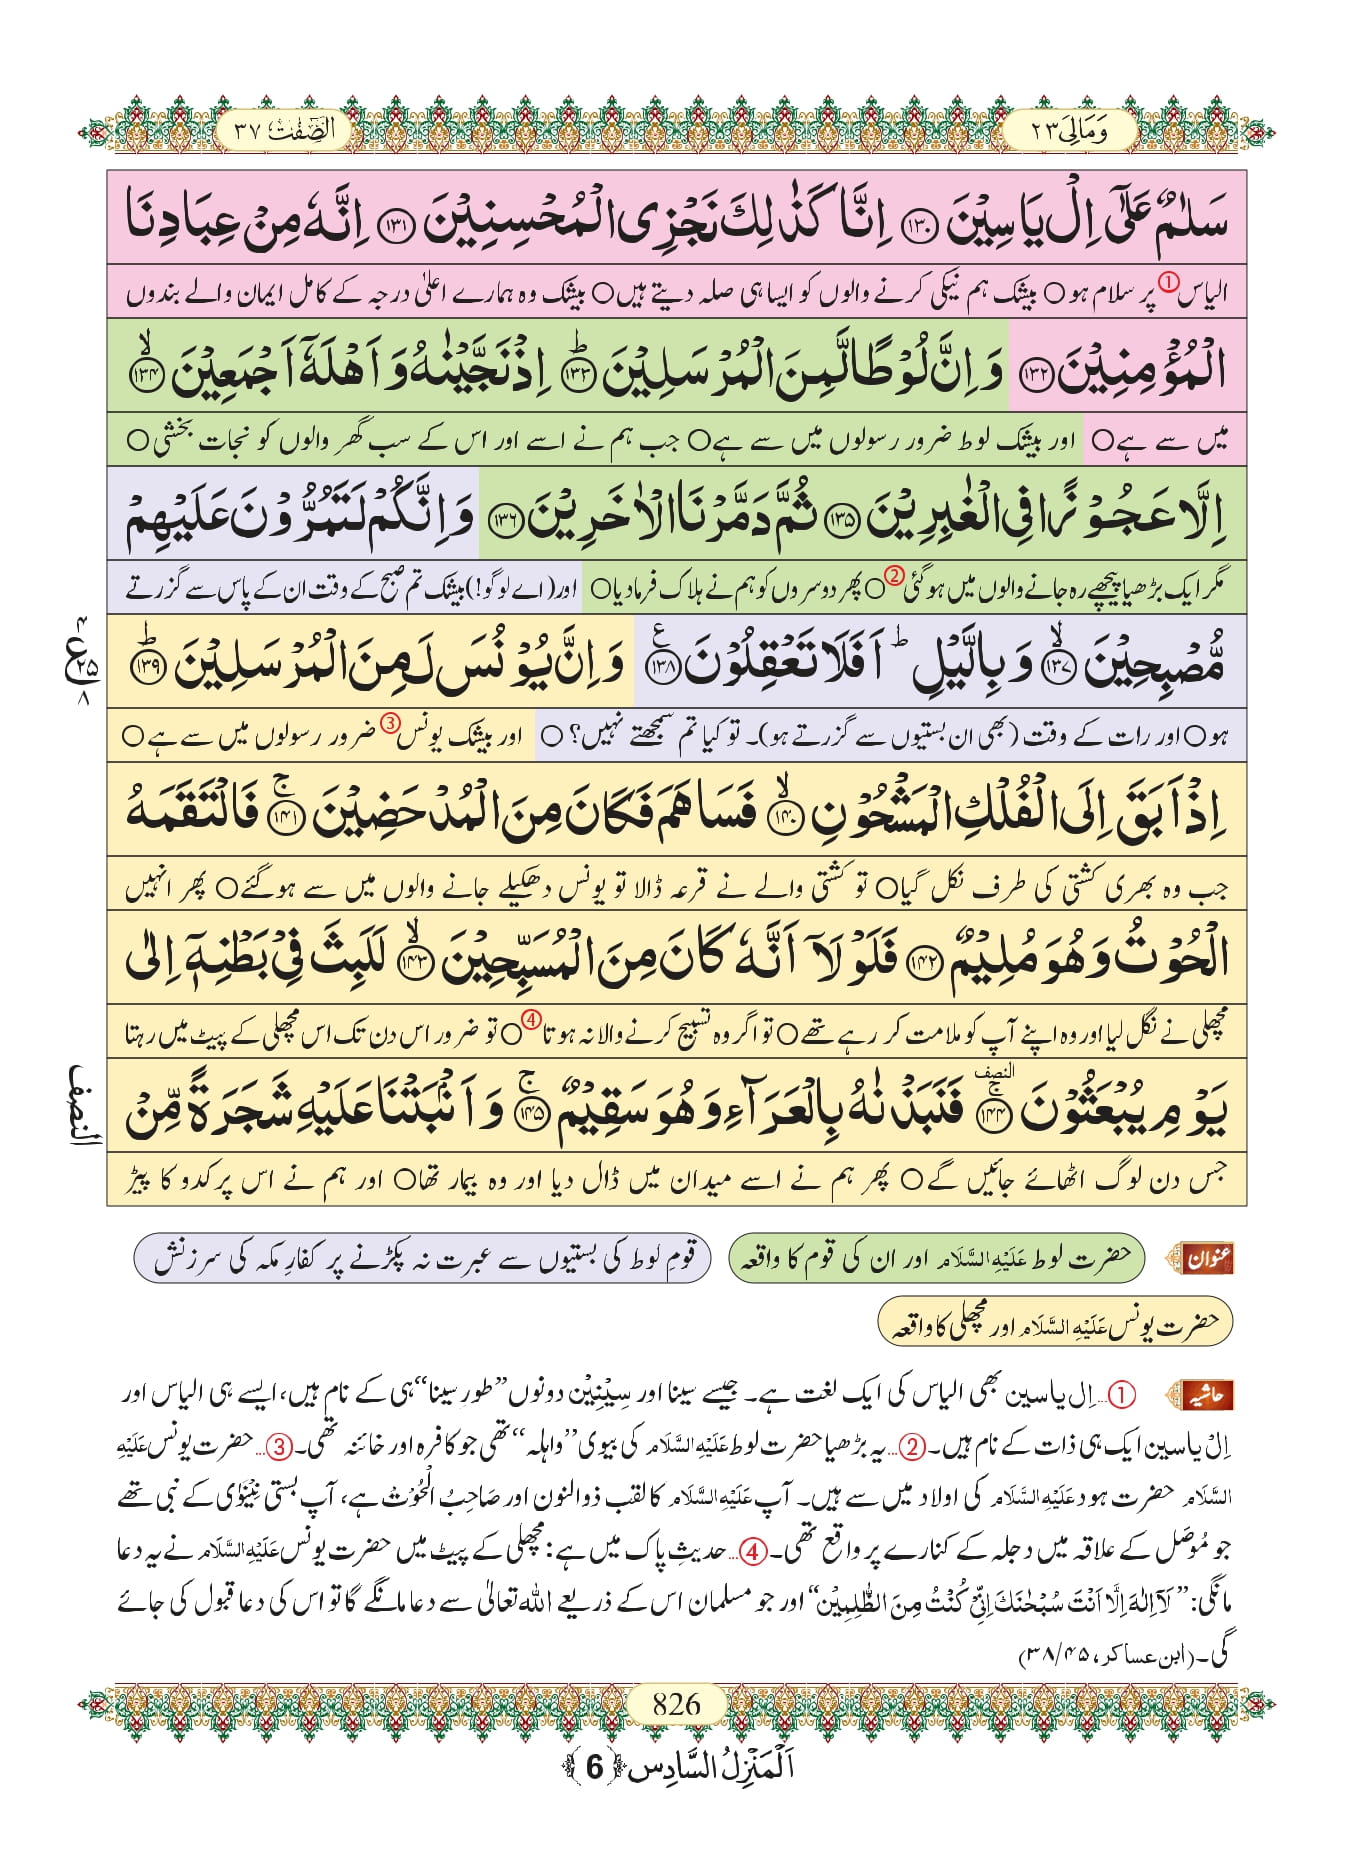 وَمَالِیَ ٢٣
الصّٰٓفّٰت ٣٧
سَلٰمٌ عَلٰۤى اِلْ یَاسِیْنَ ﴿١٣٠﴾ اِنَّا كَذٰلِكَ نَجْزِی الْمُحْسِنِیْنَ ﴿١٣١﴾ اِنَّهٗ مِنْ عِبَادِنَا
الیاس ① پر سلام ہو ○ بیشک ہم نیکی کرنے والوں کو ایسا ہی صلہ دیتے ہیں ○ بیشک وہ ہمارے اعلیٰ درجہ کے کامل ایمان والے بندوں
الْمُؤْمِنِیْنَ ﴿١٣٢﴾ وَ اِنَّ لُوْطًا لَّمِنَ الْمُرْسَلِیْنَ ؕ﴿١٣٣﴾ اِذْ نَجَّیْنٰهُ وَ اَهْلَهٗۤ اَجْمَعِیْنَ ۙ﴿١٣٤﴾
میں سے ہے ○ اور بیشک لوط ضرور رسولوں میں سے ہے ○ جب ہم نے اسے اور اس کے سب گھر والوں کو نجات بخشی ○
اِلَّا عَجُوْزًا فِی الْغٰبِرِیْنَ ﴿١٣٥﴾ ثُمَّ دَمَّرْنَا الْاٰخَرِیْنَ ﴿١٣٦﴾ وَ اِنَّكُمْ لَتَمُرُّوْنَ عَلَیْهِمْ
مگر ایک بڑھیا پیچھے رہ جانے والوں میں ہوگئی ② ○ پھر دوسروں کو ہم نے ہلاک فرمادیا ○ اور (اے لوگو!) بیشک تم صبح کے وقت ان کے پاس سے گزرتے
مُّصْبِحِیْنَ ۙ﴿١٣٧﴾ وَ بِالَّیْلِ ؕ اَفَلَا تَعْقِلُوْنَ ﴿١٣٨﴾ع وَ اِنَّ یُوْنُسَ لَمِنَ الْمُرْسَلِیْنَ ؕ﴿١٣٩﴾
ع ٢٥ ٨
ہو ○ اور رات کے وقت (بھی ان بستیوں سے گزرتے ہو)۔ تو کیا تم سمجھتے نہیں؟ ○ اور بیشک یونس ③ ضرور رسولوں میں سے ہے ○
اِذْ اَبَقَ اِلَى الْفُلْكِ الْمَشْحُوْنِ ۙ﴿١٤٠﴾ فَسَاهَمَ فَكَانَ مِنَ الْمُدْحَضِیْنَ ۚ﴿١٤١﴾ فَالْتَقَمَهُ
جب وہ بھری کشتی کی طرف نکل گیا ○ تو کشتی والے نے قرعہ ڈالا تو یونس دھکیلے جانے والوں میں سے ہوگئے ○ پھر انہیں
الْحُوْتُ وَ هُوَ مُلِیْمٌ ﴿١٤٢﴾ فَلَوْ لَاۤ اَنَّهٗ كَانَ مِنَ الْمُسَبِّحِیْنَ ۙ﴿١٤٣﴾ لَلَبِثَ فِیْ بَطْنِهٖۤ اِلٰى
مچھلی نے نگل لیا اور وہ اپنے آپ کو ملامت کر رہے تھے ○ تو اگر وہ تسبیح کرنے والا نہ ہوتا ④ ○ تو ضرور اس دن تک اس مچھلی کے پیٹ میں رہتا
یَوْمِ یُبْعَثُوْنَ ۚ﴿١٤٤﴾ النصف فَنَبَذْنٰهُ بِالْعَرَآءِ وَ هُوَ سَقِیْمٌ ۚ﴿١٤٥﴾ وَ اَنْۢبَتْنَا عَلَیْهِ شَجَرَةً مِّنْ
النصف
جس دن لوگ اٹھائے جائیں گے ○ پھر ہم نے اسے میدان میں ڈال دیا اور وہ بیمار تھا ○ اور ہم نے اس پر کدو کا پیڑ
عنوان حضرت لوط عَلَیْهِ السَّلَام اور ان کی قوم کا واقعہ قومِ لوط کی بستیوں سے عبرت نہ پکڑنے پر کفارِ مکہ کی سرزنش
حضرت یونس عَلَیْهِ السَّلَام اور مچھلی کا واقعہ
حاشیہ ①...اِل یاسین بھی الیاس کی ایک لغت ہے۔ جیسے سینا اور سِیْنِیْن دونوں ”طورِ سینا“ ہی کے نام ہیں، ایسے ہی الیاس اور
اِلْ یاسین ایک ہی ذات کے نام ہیں۔ ②...یہ بڑھیا حضرت لوط عَلَیْهِ السَّلَام کی بیوی ”واہلہ“ تھی جو کافرہ اور خائنہ تھی۔ ③...حضرت یونس عَلَیْهِ
السَّلَام حضرت ہود عَلَیْهِ السَّلَام کی اولاد میں سے ہیں۔ آپ عَلَیْهِ السَّلَام کا لقب ذوالنون اور صَاحِبُ الْحُوْت ہے، آپ بستی نِیْنَوٰی کے نبی تھے
جو مُوْصَل کے علاقہ میں دجلہ کے کنارے پر واقع تھی۔ ④...حدیثِ پاک میں ہے: مچھلی کے پیٹ میں حضرت یونس عَلَیْهِ السَّلَام نے یہ دعا
مانگی: ”لَاۤ اِلٰهَ اِلَّاۤ اَنْتَ سُبْحٰنَكَ اِنِّیْ كُنْتُ مِنَ الظّٰلِمِیْنَ“ اور جو مسلمان اس کے ذریعے اللہ تعالیٰ سے دعا مانگے گا تو اس کی دعا قبول کی جائے
گی۔ (ابن عساکر، ۴۵/۳۸)
826
اَلْمَنْزِلُ السَّادِس ﴿6﴾